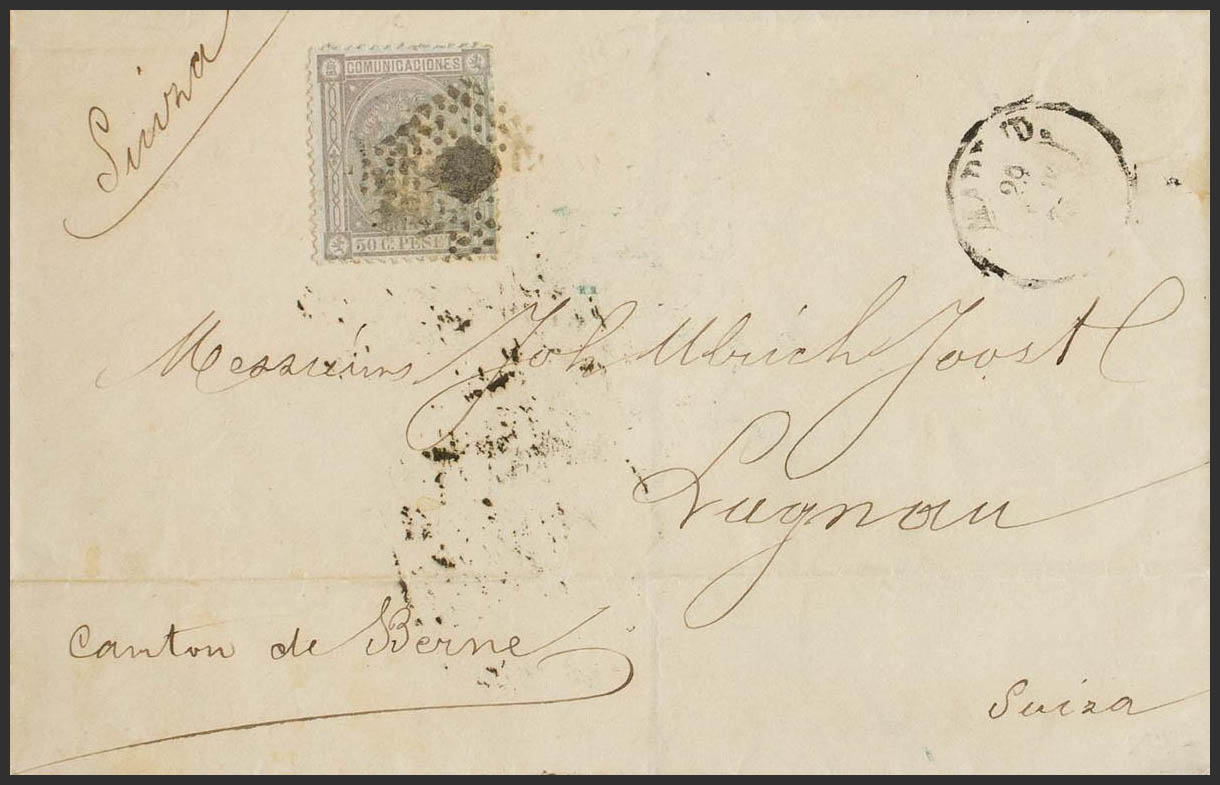 Suiza
COMUNICACIONES
50 C. PESE
MADRID.
29
Messieurs Joh Ulrich Joost
Lagnau
Canton de Berne
Suiza